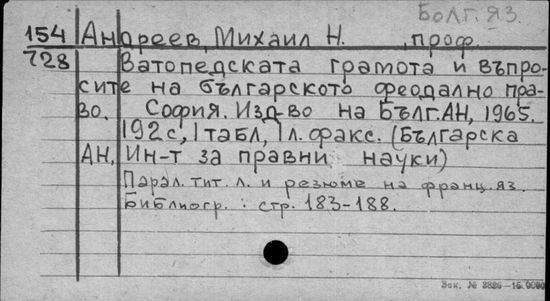 Болг. яз.
154 Андреев, Михаил Н. , проф.
728 Ватопедската грамота и въпро-
сите на българското феодално пра-
во. София. Изд-во на Бълг.АН, 1965.
192 с, 1 табл, 1 л. факс. (Българска
АН. Ин-т за правни науки)
Парал. тит. л. и резюме на франц. яз.
Библиогр. : стр. 183-188.
Зак. №